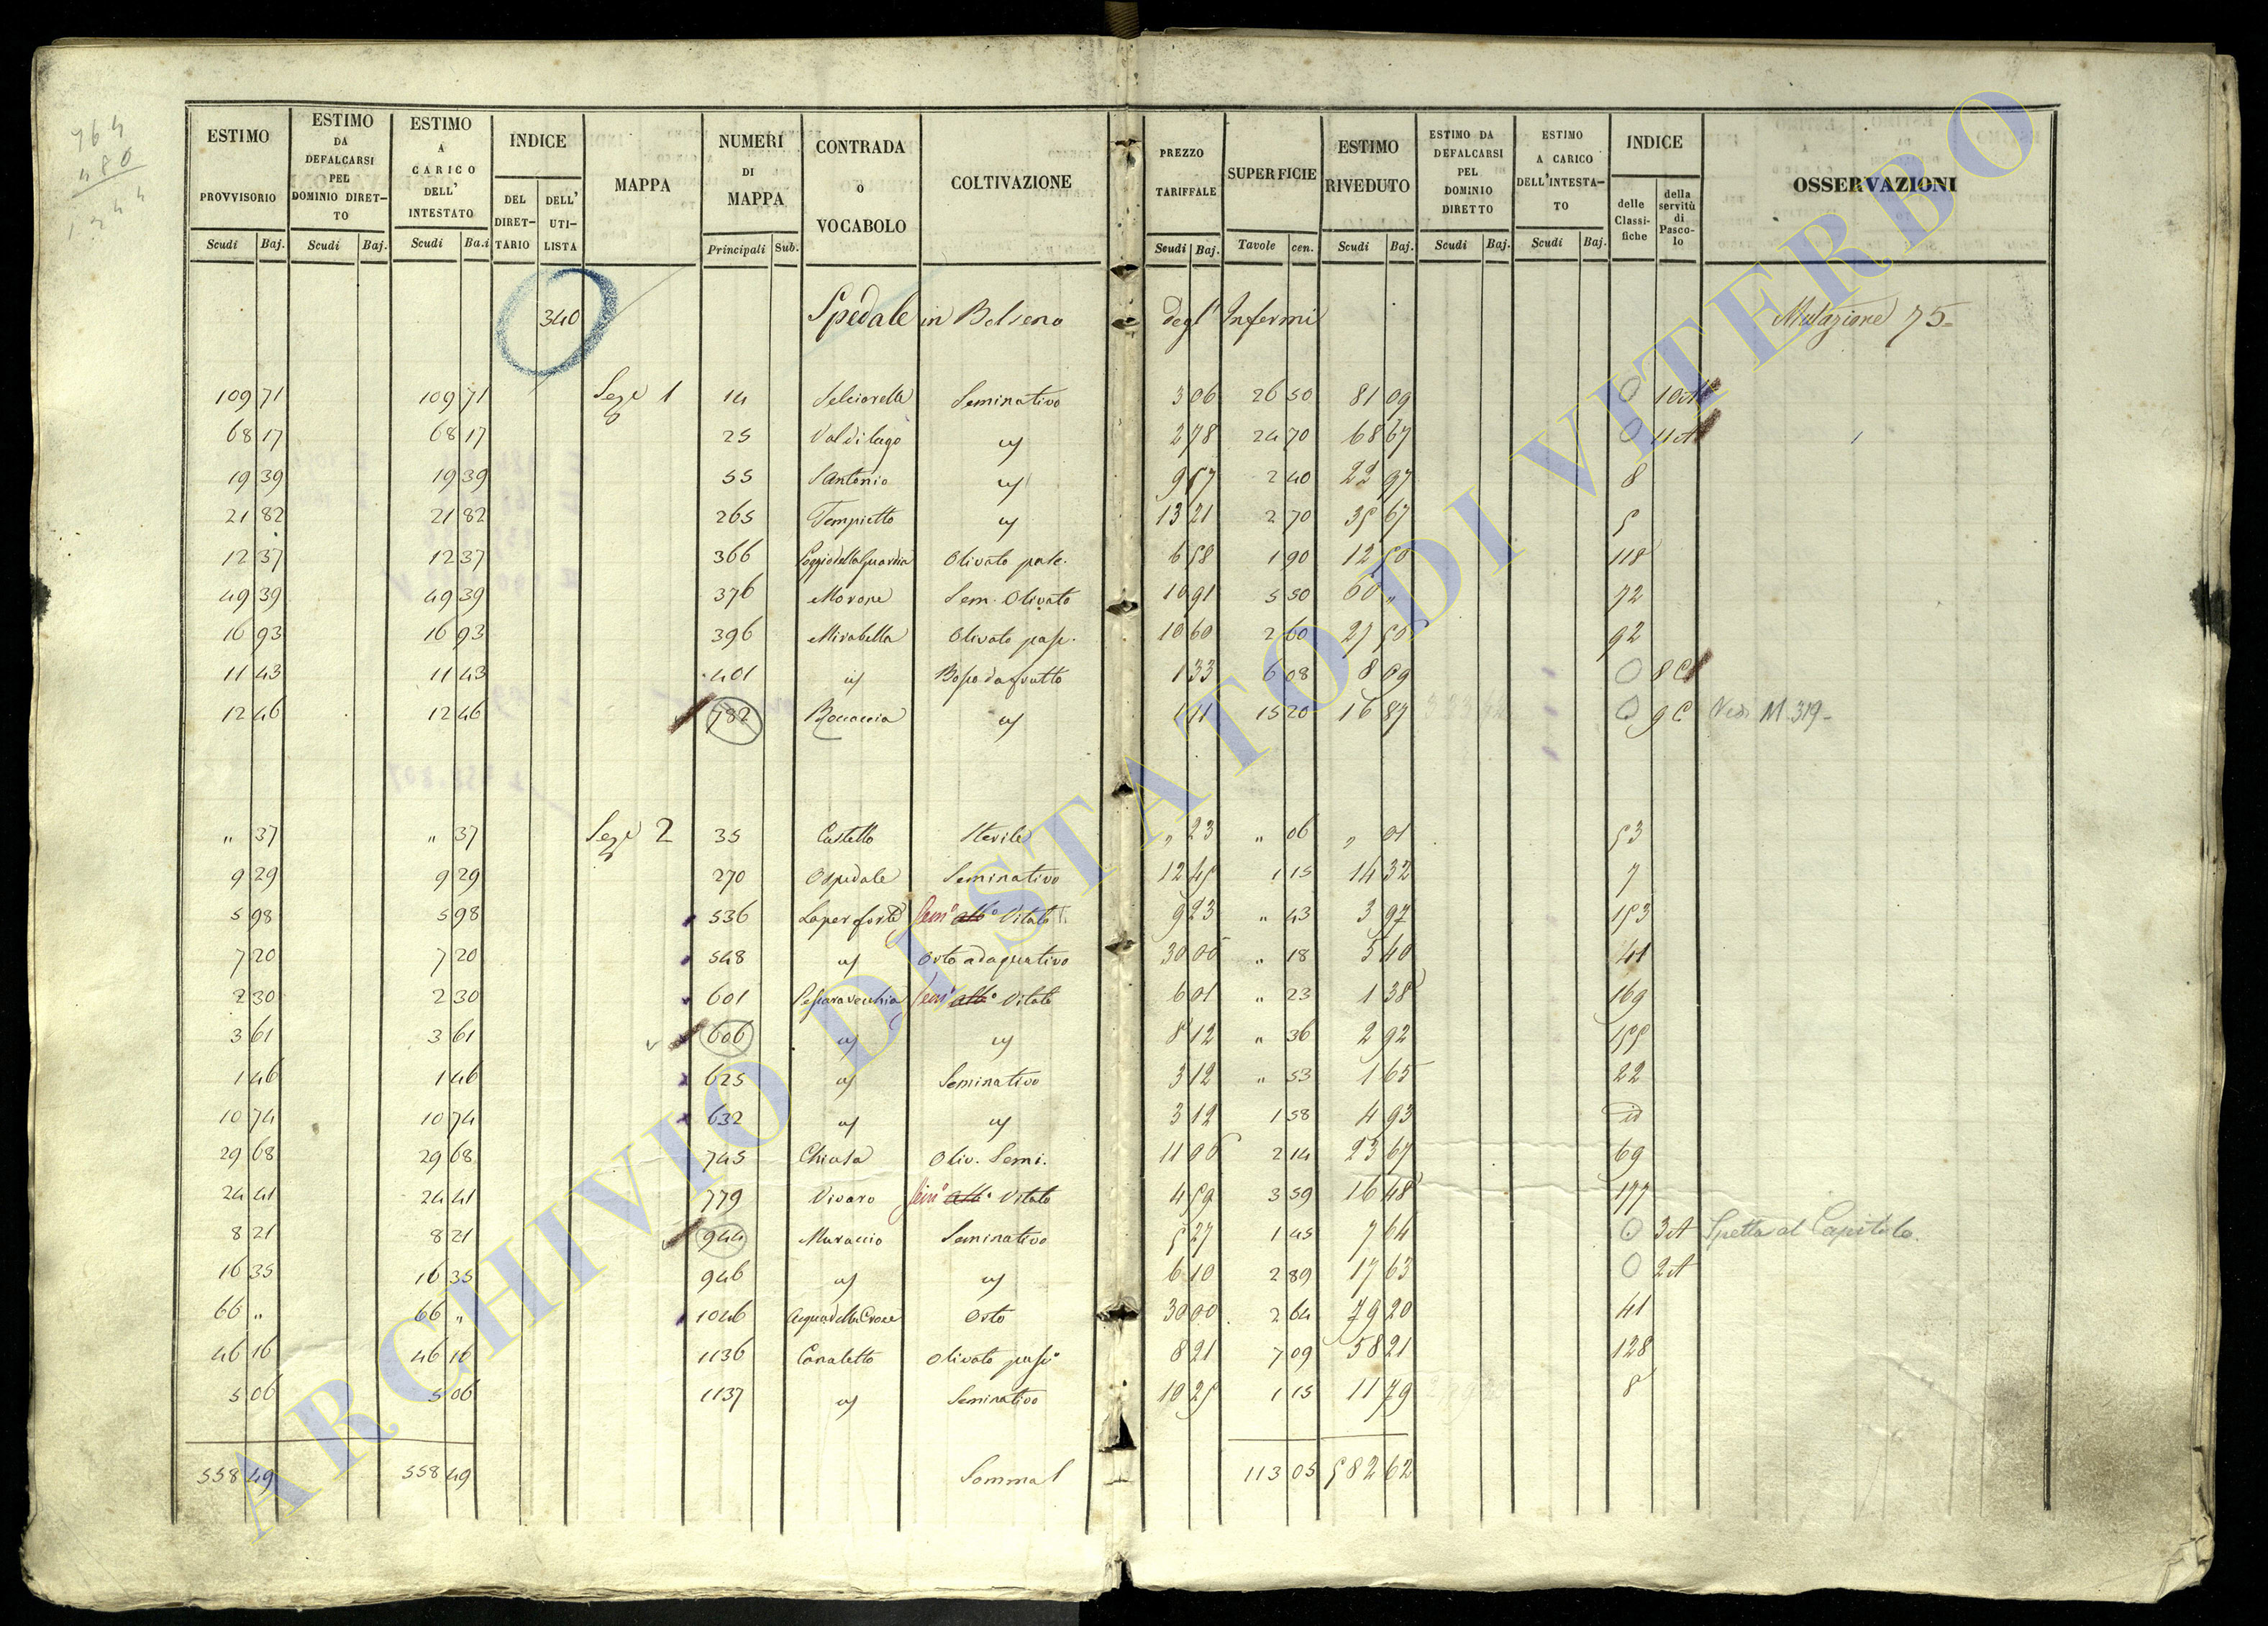 764
480
1244
ESTIMO PROVVISORIO Scudi Baj. | ESTIMO DA DEFALCARSI PEL DOMINIO DIRETTO Scudi Baj. | ESTIMO A CARICO DELL' INTESTATO Scudi Ba.i | INDICE DEL DIRETTARIO DELL' UTILISTA | MAPPA | NUMERI DI MAPPA Principali Sub. | CONTRADA O VOCABOLO | COLTIVAZIONE | PREZZO TARIFFALE Scudi Baj. | SUPERFICIE Tavole cen. | ESTIMO RIVEDUTO Scudi Baj. | ESTIMO DA DEFALCARSI PEL DOMINIO DIRETTO Scudi Baj. | ESTIMO A CARICO DELL'INTESTATO Scudi Baj. | INDICE delle Classifiche della servitù di Pascolo | OSSERVAZIONI
340 Spedale in Bolseno degl' Infermi Mutazione 75
109 71 109 71 Sez.e 1 14 Selciarella Seminativo 3 06 26 50 81 09 0 10 A
68 17 68 17 25 Valdilago id 2 78 24 70 68 67 0 11 A
19 39 19 39 55 S Antonio id 9 57 2 40 22 97 8
21 82 21 82 265 Tempietto id 13 21 2 70 35 67 5
12 37 12 37 366 Poggio della Guardia Olivato pasc. 6 58 1 90 12 50 118
49 39 49 39 376 Morone Sem. Olivato 10 91 5 50 60 " 72
16 93 16 93 396 Mirabella Olivato pasc. 10 60 2 60 27 50 92
11 43 11 43 401 id Bosco da frutto 1 33 6 08 8 09 0 8 C
12 46 12 46 782 Boccaccia id 1 11 15 20 16 87 0 9 C Vedi M. 319
" 37 " 37 Sez.e 2 35 Castello Sterile " 23 " 06 " 01 53
9 29 9 29 270 Ospedale Seminativo 12 45 1 15 14 32 7
5 98 5 98 536 Laperforte Sem.o alb.o Vitato 9 23 " 43 3 97 153
7 20 7 20 548 id Orto adaquativo 30 00 " 18 5 40 41
2 30 2 30 601 Pescara vecchia Sem.o alb.o Vitato 6 01 " 23 1 38 169
3 61 3 61 606 id id 8 12 " 36 2 92 155
1 46 1 46 625 id Seminativo 3 12 " 53 1 65 22
10 74 10 74 632 id id 3 12 1 58 4 93 id
29 68 29 68 745 Chiusa Oliv. Semi. 11 06 2 14 23 67 69
24 41 24 41 779 Vivaro Sem.o alb.o Vitato 4 59 3 59 16 48 177
8 21 8 21 944 Muraccio Seminativo 5 27 1 45 7 64 0 3 A Spetta al Capitolo.
16 35 16 35 946 id id 6 10 2 89 17 63 0 2 A
66 " 66 " 1046 Acqua della Croce Orto 30 00 2 64 79 20 41
46 16 46 16 1136 Canaletto Olivato pasc.o 8 21 7 09 58 21 128
5 06 5 06 1137 id Seminativo 10 25 1 15 11 79 8
558 49 558 49 Somma 113 05 582 62
ARCHIVIO DI STATO DI VITERBO